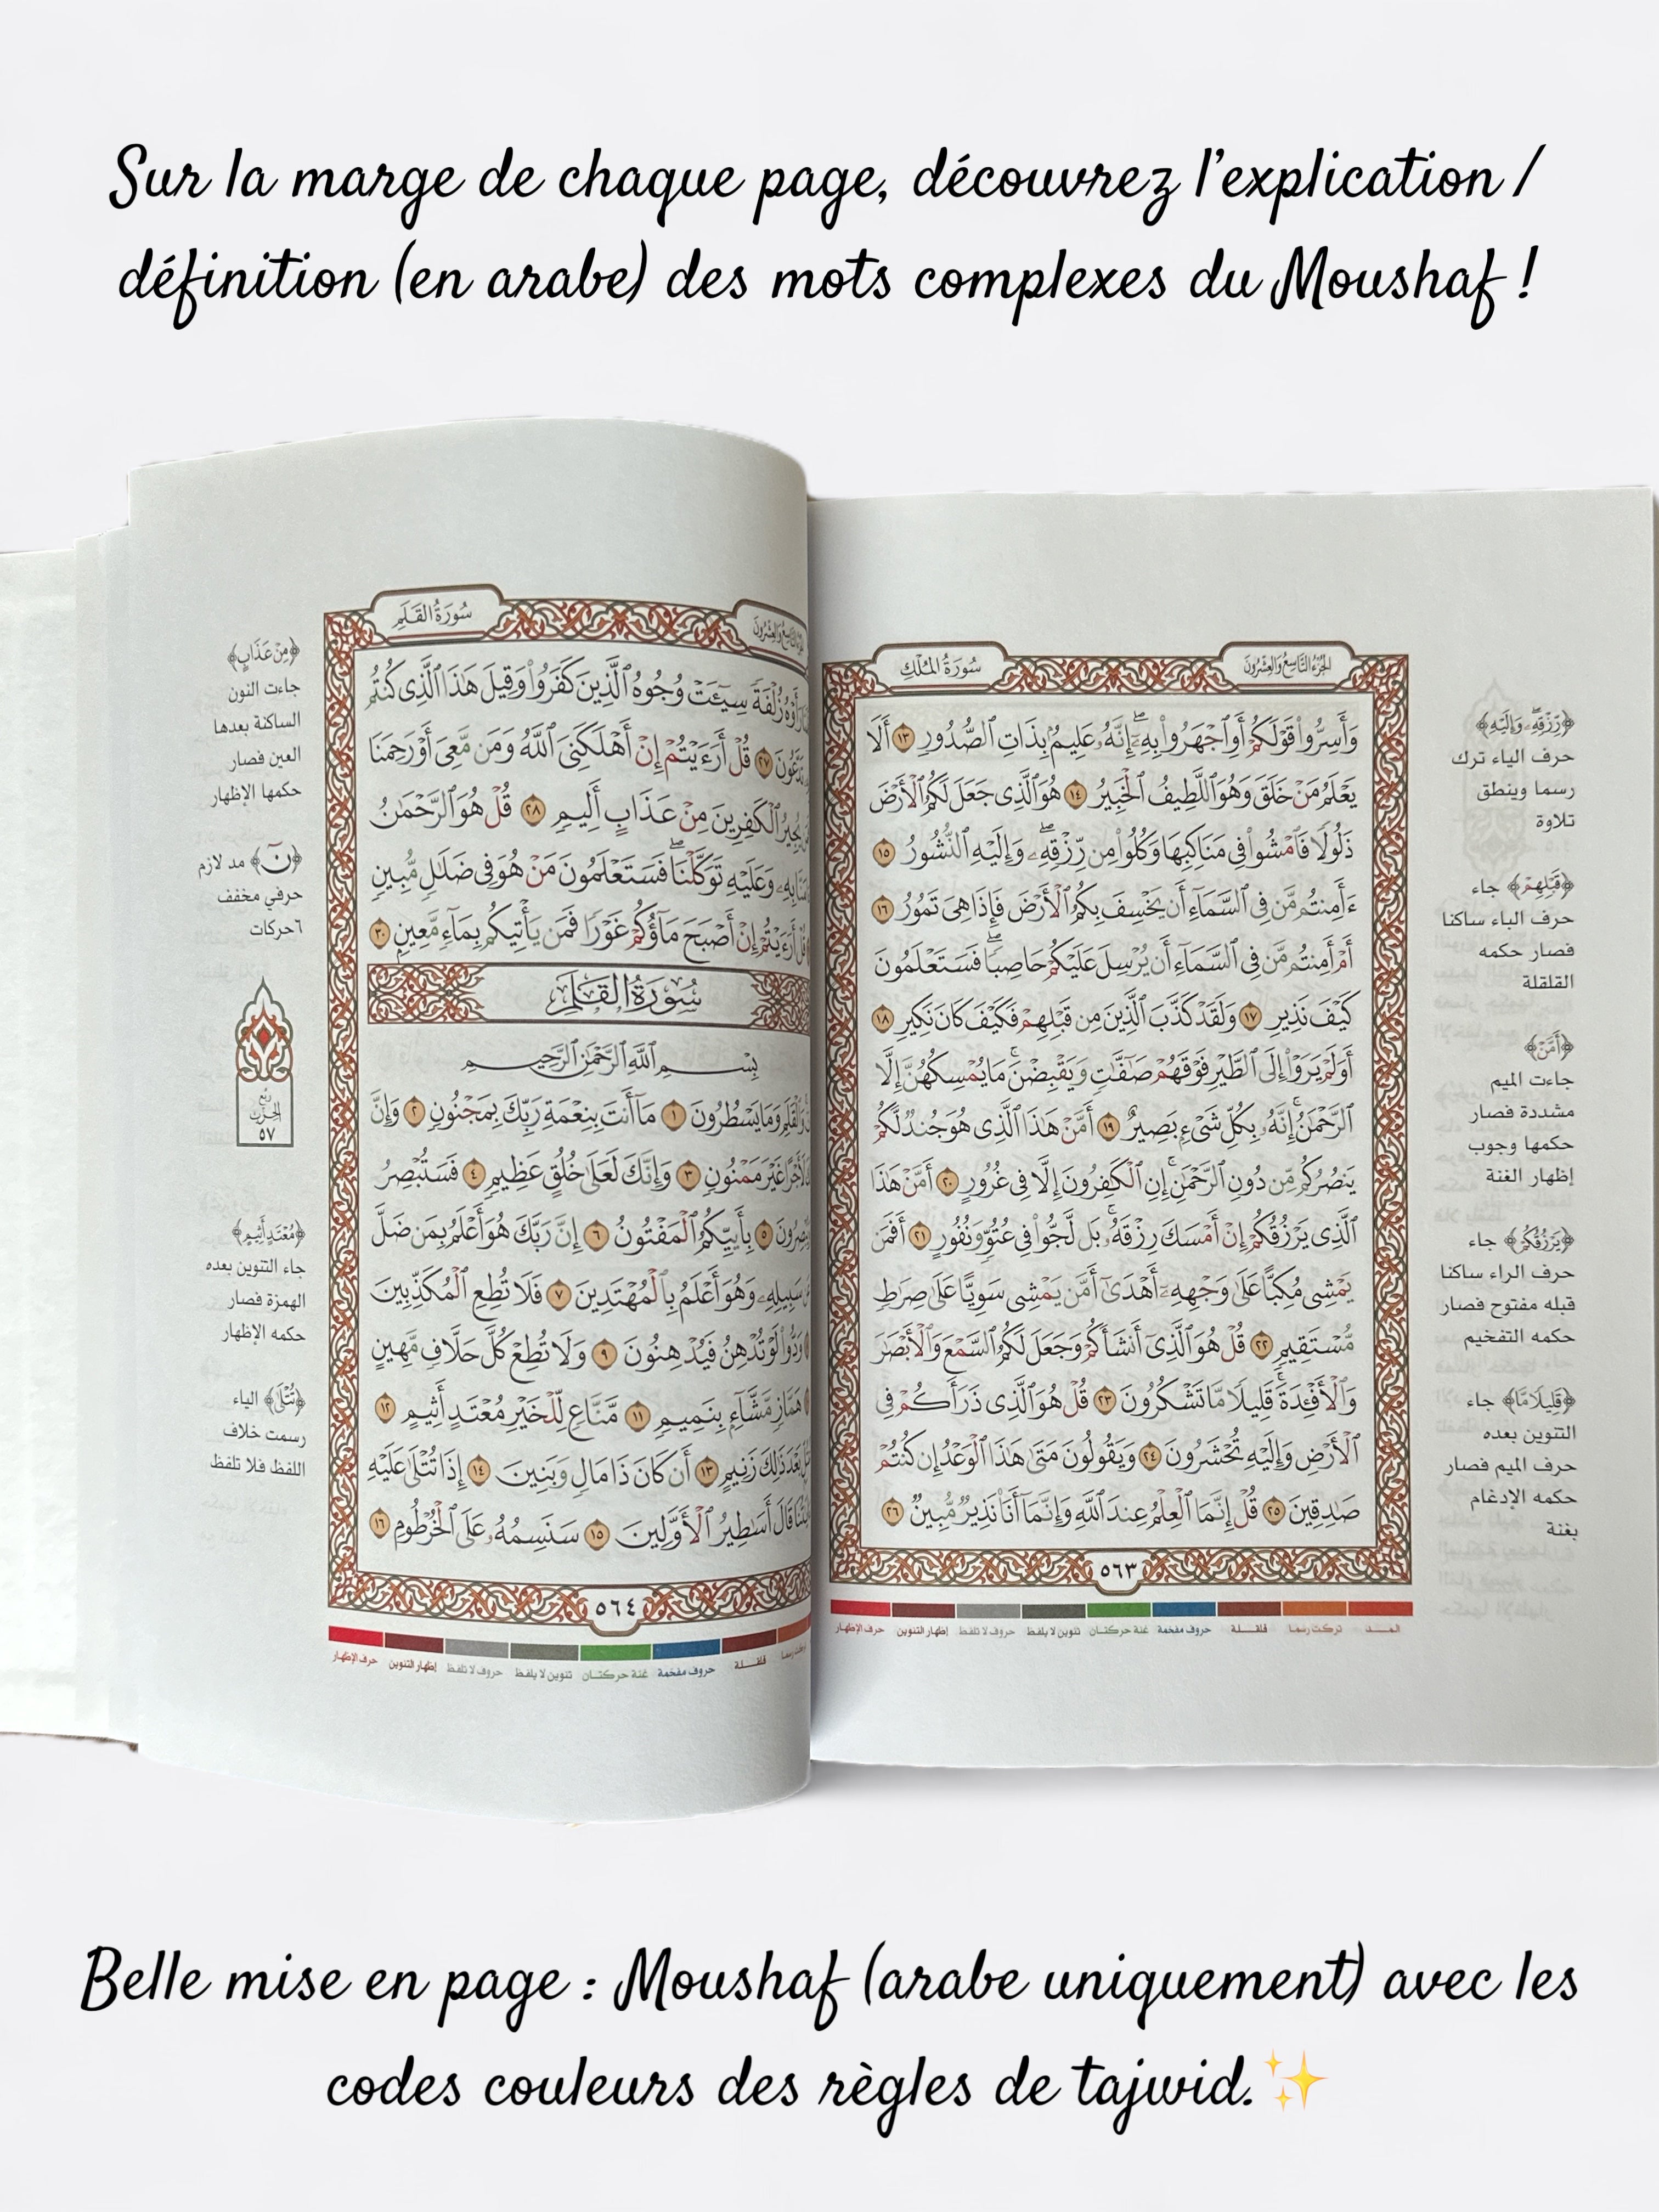 Sur la marge de chaque page, découvrez l'explication /
définition (en arabe) des mots complexes du Moushaf !
سُورَةُ المُلْكِ
الجُزْءُ التَّاسِعُ وَالعِشْرُونَ
وَأَسِرُّوا۟ قَوْلَكُمْ أَوِ ٱجْهَرُوا۟ بِهِۦٓ ۖ إِنَّهُۥ عَلِيمٌۢ بِذَاتِ ٱلصُّدُورِ ١٣ أَلَا
يَعْلَمُ مَنْ خَلَقَ وَهُوَ ٱللَّطِيفُ ٱلْخَبِيرُ ١٤ هُوَ ٱلَّذِى جَعَلَ لَكُمُ ٱلْأَرْضَ
ذَلُولًا فَٱمْشُوا۟ فِى مَنَاكِبِهَا وَكُلُوا۟ مِن رِّزْقِهِۦ ۖ وَإِلَيْهِ ٱلنُّشُورُ ١٥
ءَأَمِنتُم مَّن فِى ٱلسَّمَآءِ أَن يَخْسِفَ بِكُمُ ٱلْأَرْضَ فَإِذَا هِىَ تَمُورُ ١٦
أَمْ أَمِنتُم مَّن فِى ٱلسَّمَآءِ أَن يُرْسِلَ عَلَيْكُمْ حَاصِبًا ۖ فَسَتَعْلَمُونَ
كَيْفَ نَذِيرِ ١٧ وَلَقَدْ كَذَّبَ ٱلَّذِينَ مِن قَبْلِهِمْ فَكَيْفَ كَانَ نَكِيرِ ١٨
أَوَلَمْ يَرَوْا۟ إِلَى ٱلطَّيْرِ فَوْقَهُمْ صَٰٓفَّٰتٍ وَيَقْبِضْنَ ۚ مَا يُمْسِكُهُنَّ إِلَّا
ٱلرَّحْمَٰنُ ۚ إِنَّهُۥ بِكُلِّ شَىْءٍۭ بَصِيرٌ ١٩ أَمَّنْ هَٰذَا ٱلَّذِى هُوَ جُندٌ لَّكُمْ
يَنصُرُكُم مِّن دُونِ ٱلرَّحْمَٰنِ ۚ إِنِ ٱلْكَٰفِرُونَ إِلَّا فِى غُرُورٍ ٢٠ أَمَّنْ هَٰذَا
ٱلَّذِى يَرْزُقُكُمْ إِنْ أَمْسَكَ رِزْقَهُۥ ۚ بَل لَّجُّوا۟ فِى عُتُوٍّ وَنُفُورٍ ٢١ أَفَمَن
يَمْشِى مُكِبًّا عَلَىٰ وَجْهِهِۦٓ أَهْدَىٰٓ أَمَّن يَمْشِى سَوِيًّا عَلَىٰ صِرَٰطٍ
مُّسْتَقِيمٍ ٢٢ قُلْ هُوَ ٱلَّذِىٓ أَنشَأَكُمْ وَجَعَلَ لَكُمُ ٱلسَّمْعَ وَٱلْأَبْصَٰرَ
وَٱلْأَفْـِٔدَةَ ۖ قَلِيلًا مَّا تَشْكُرُونَ ٢٣ قُلْ هُوَ ٱلَّذِى ذَرَأَكُمْ فِى
ٱلْأَرْضِ وَإِلَيْهِ تُحْشَرُونَ ٢٤ وَيَقُولُونَ مَتَىٰ هَٰذَا ٱلْوَعْدُ إِن كُنتُمْ
صَٰدِقِينَ ٢٥ قُلْ إِنَّمَا ٱلْعِلْمُ عِندَ ٱللَّهِ وَإِنَّمَآ أَنَا۠ نَذِيرٌ مُّبِينٌ ٢٦
٥٦٣
المـد تركت رسما قلقلة حروف مفخمة غنة حركتان تنوين لا يلفظ حروف لا تلفظ إظهار التنوين حرف الإظهار
﴿رِّزْقِهِۦ ۖ وَإِلَيْهِ﴾
حرف الياء ترك
رسما وينطق
تلاوة
﴿قَبْلِهِمْ﴾ جاء
حرف الباء ساكنا
فصار حكمه
القلقلة
﴿أَمَّنْ﴾
جاءت الميم
مشددة فصار
حكمها وجوب
إظهار الغنة
﴿يَرْزُقُكُمْ﴾ جاء
حرف الراء ساكنا
قبله مفتوح فصار
حكمه التفخيم
﴿قَلِيلًا مَّا﴾ جاء
التنوين بعده
حرف الميم فصار
حكمه الإدغام
بغنة
سُورَةُ القَلَمِ
رَأَوْهُ زُلْفَةً سِيٓـَٔتْ وُجُوهُ ٱلَّذِينَ كَفَرُوا۟ وَقِيلَ هَٰذَا ٱلَّذِى كُنتُم
تَدَّعُونَ ٢٧ قُلْ أَرَءَيْتُمْ إِنْ أَهْلَكَنِىَ ٱللَّهُ وَمَن مَّعِىَ أَوْ رَحِمَنَا
يُجِيرُ ٱلْكَٰفِرِينَ مِنْ عَذَابٍ أَلِيمٍ ٢٨ قُلْ هُوَ ٱلرَّحْمَٰنُ
بِهِۦ وَعَلَيْهِ تَوَكَّلْنَا ۖ فَسَتَعْلَمُونَ مَنْ هُوَ فِى ضَلَٰلٍ مُّبِينٍ
قُلْ أَرَءَيْتُمْ إِنْ أَصْبَحَ مَآؤُكُمْ غَوْرًا فَمَن يَأْتِيكُم بِمَآءٍ مَّعِينٍۭ ٣٠
سُورَةُ القَلَمِ
بِسْمِ ٱللَّهِ ٱلرَّحْمَٰنِ ٱلرَّحِيمِ
وَٱلْقَلَمِ وَمَا يَسْطُرُونَ ١ مَآ أَنتَ بِنِعْمَةِ رَبِّكَ بِمَجْنُونٍ ٢ وَإِنَّ
لَأَجْرًا غَيْرَ مَمْنُونٍ ٣ وَإِنَّكَ لَعَلَىٰ خُلُقٍ عَظِيمٍ ٤ فَسَتُبْصِرُ
٥ بِأَييِّكُمُ ٱلْمَفْتُونُ ٦ إِنَّ رَبَّكَ هُوَ أَعْلَمُ بِمَن ضَلَّ
سَبِيلِهِۦ وَهُوَ أَعْلَمُ بِٱلْمُهْتَدِينَ ٧ فَلَا تُطِعِ ٱلْمُكَذِّبِينَ
لَوْ تُدْهِنُ فَيُدْهِنُونَ ٩ وَلَا تُطِعْ كُلَّ حَلَّافٍ مَّهِينٍ
هَمَّازٍ مَّشَّآءٍۭ بِنَمِيمٍ ١١ مَّنَّاعٍ لِّلْخَيْرِ مُعْتَدٍ أَثِيمٍ ١٢
بَعْدَ ذَٰلِكَ زَنِيمٍ ١٣ أَن كَانَ ذَا مَالٍ وَبَنِينَ ١٤ إِذَا تُتْلَىٰ عَلَيْهِ
قَالَ أَسَٰطِيرُ ٱلْأَوَّلِينَ ١٥ سَنَسِمُهُۥ عَلَى ٱلْخُرْطُومِ ١٦
٥٦٤
قلقلة حروف مفخمة غنة حركتان تنوين لا يلفظ حروف لا تلفظ إظهار التنوين حرف الإظهار
﴿مِنْ عَذَابٍ﴾
جاءت النون
الساكنة بعدها
العين فصار
حكمها الإظهار
﴿نٓ﴾ مد لازم
حرفي مخفف
٦حركات
ربع
الحزب
٥٧
﴿مُعْتَدٍ أَثِيمٍ﴾
جاء التنوين بعده
الهمزة فصار
حكمه الإظهار
﴿تُتْلَىٰ﴾ الياء
رسمت خلاف
اللفظ فلا تلفظ
Belle mise en page : Moushaf (arabe uniquement) avec les
codes couleurs des règles de tajwid.✨